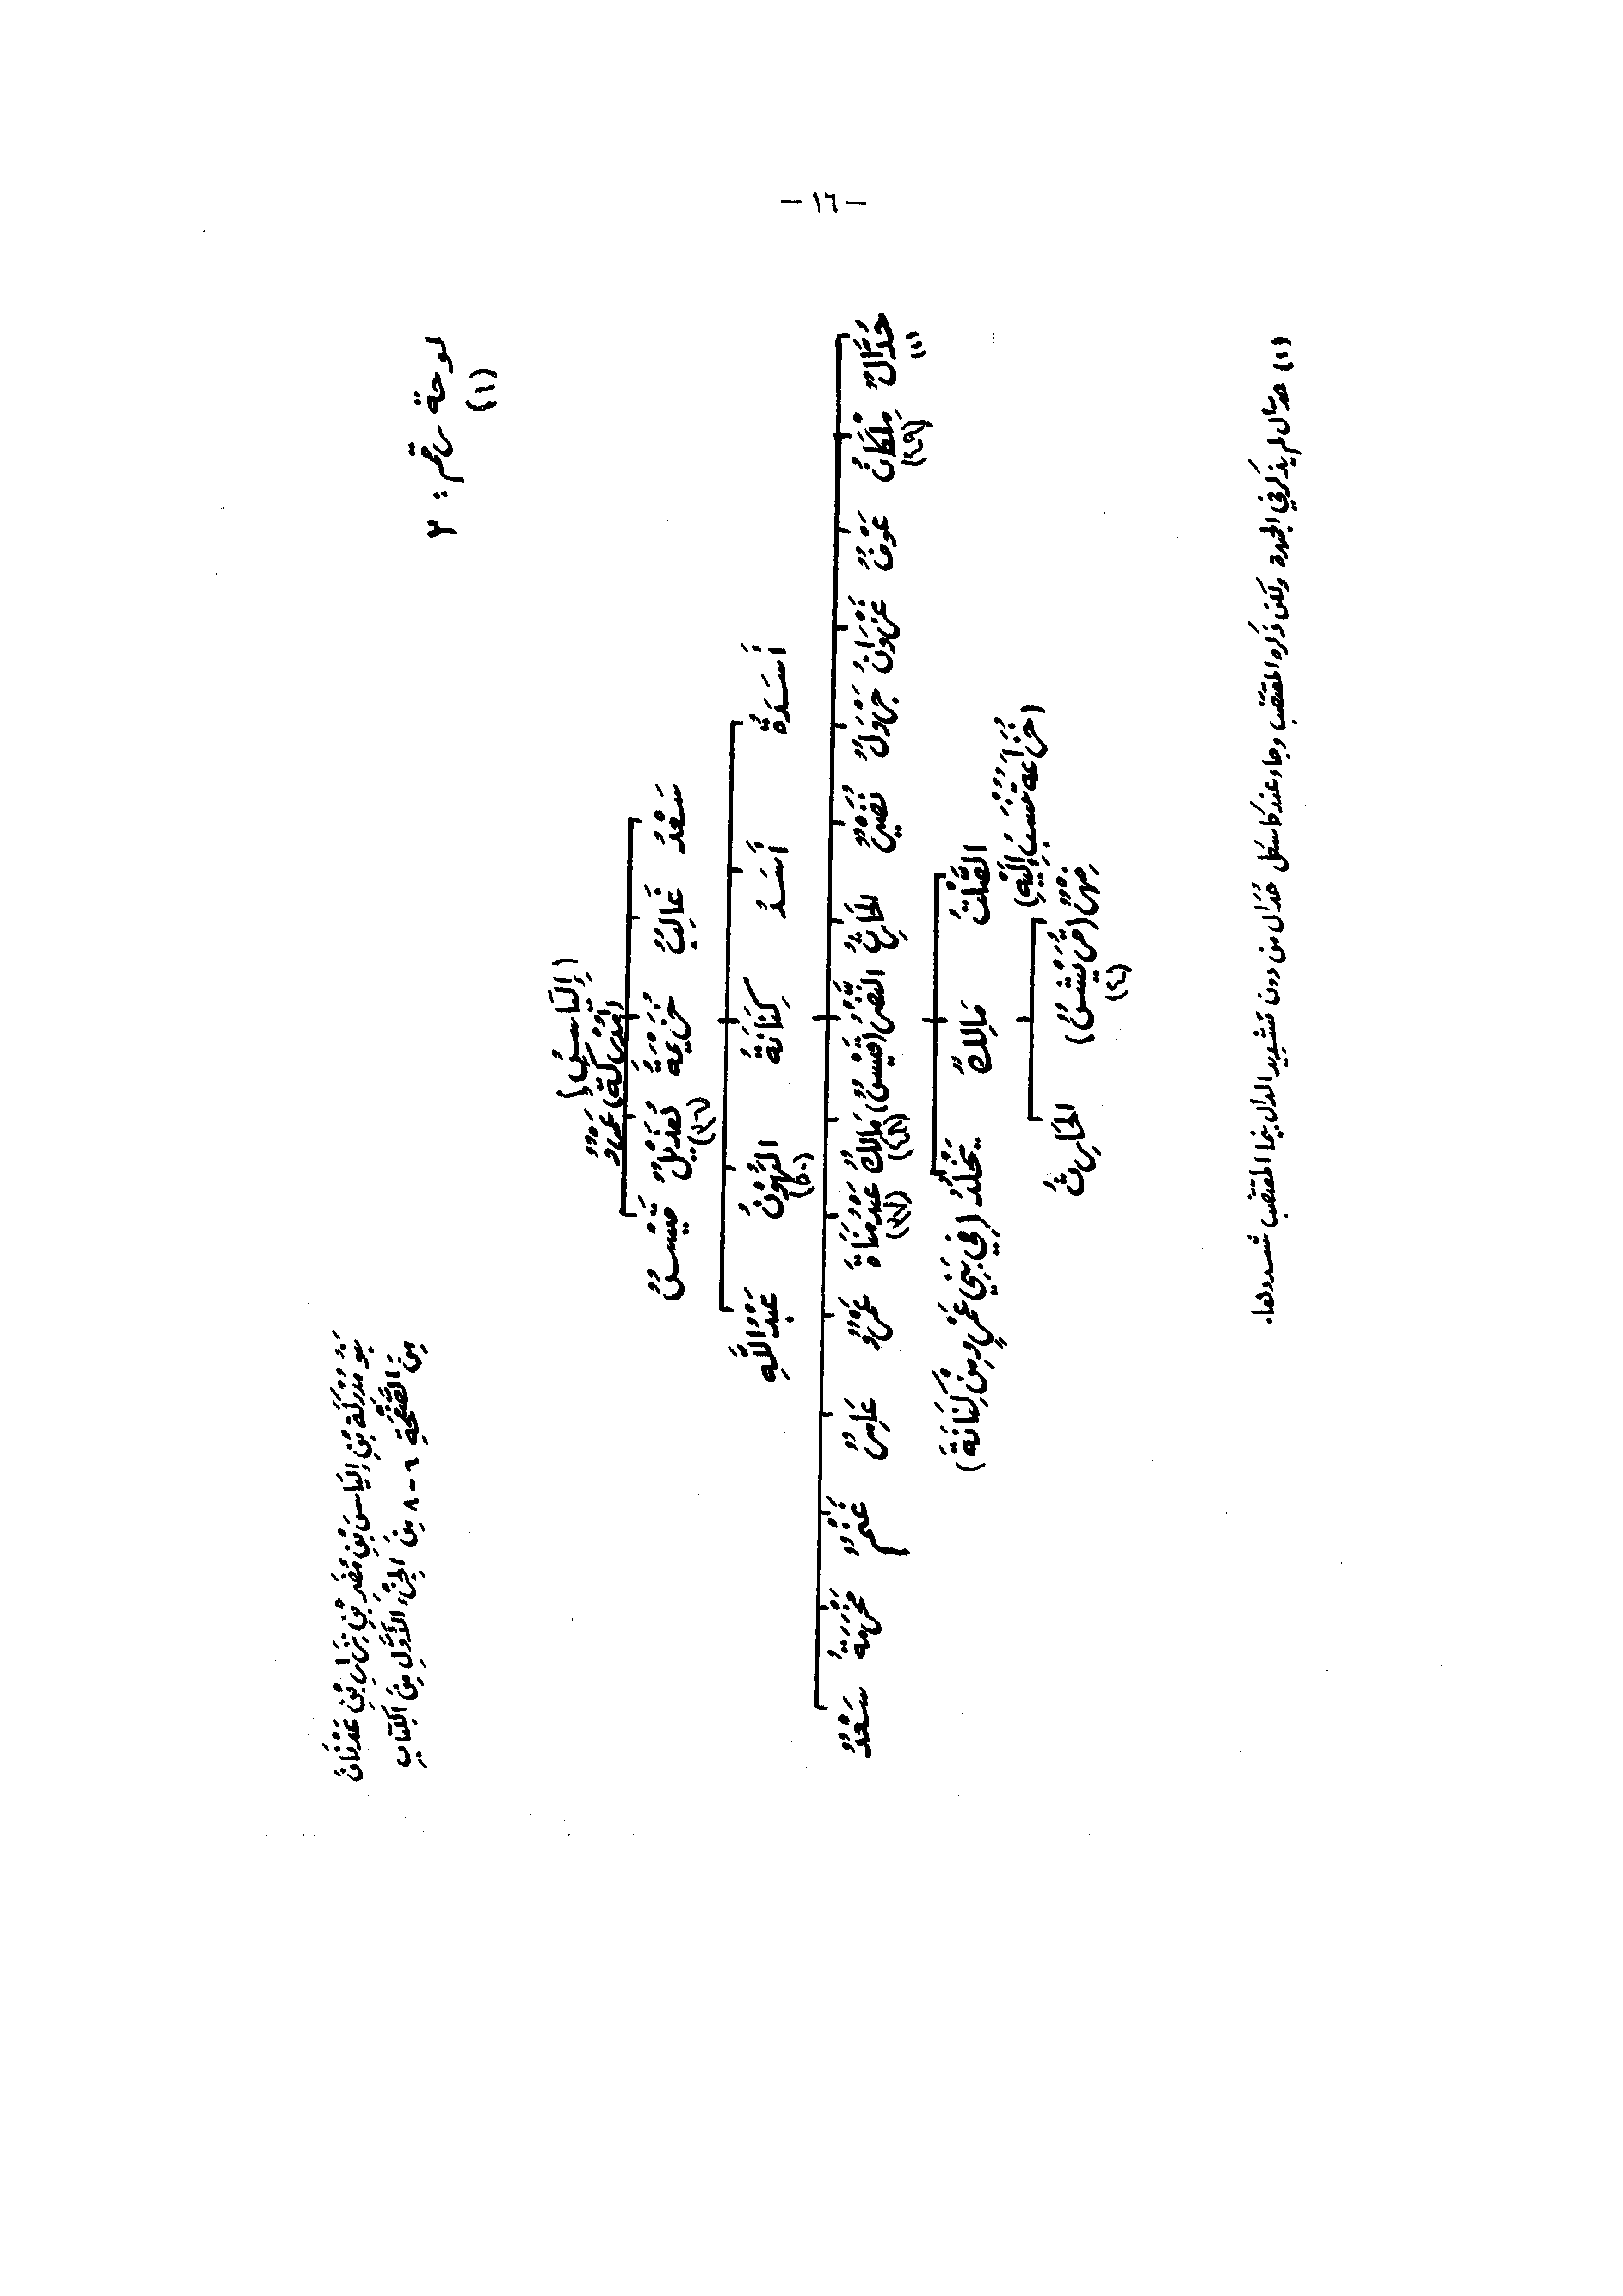 - ١٦ -
لوحة رقم: ٢
(١)
بَنُو مُدْرِكَةَ بْنِ إِلْيَاسَ بْنِ مُضَرَ بْنِ نِزَارِ بْنِ عَدْنَانَ
مِنَ الصَّفْحَةِ ٦-٨ مِنَ الجُزْءِ الأَوَّلِ مِنَ الكِتَابِ
(إِلْيَاسُ)
(مُدْرِكَةُ) عَمْرٌو
سَعْدٌ غَالِبٌ خُزَيْمَةُ هُذَيْلٌ قَيْسٌ
(٣٦)
أَسَدَةُ أَسَدٌ كِنَانَةُ الهُوْنُ عَبْدُ اللَّهِ
(٥٠)
حُدَّالٌ مِلْكَانُ عَوْفٌ غَزْوَانُ جَرْوَلٌ نُضَيْرٌ الحَارِثُ النَّضْرُ (قَيْسٌ) مَالِكٌ عَبْدُ مَنَاةَ عَمْرٌو عَامِرٌ غَنْمٌ مَخْرَمَةُ سَعْدٌ
(١) (٤٩) (٤٨) (٣٧)
الصَّلْتُ مَالِكٌ يَخْلُدُ (فِي بَنِي عَمْرٍو مِنْ كِنَانَةَ)
(خُزَاعَةُ تُنْسَبُ إِلَيْهِ)
فِهْرٌ (قُرَيْشٌ) الحَارِثُ
(٤)
(١) حدّال لم يذكر في الجمهرة ولكن ذكره المقتضب وجاء عند كاسكل حُدَال من دون تشديد الدال بينما المقتضب شددها.